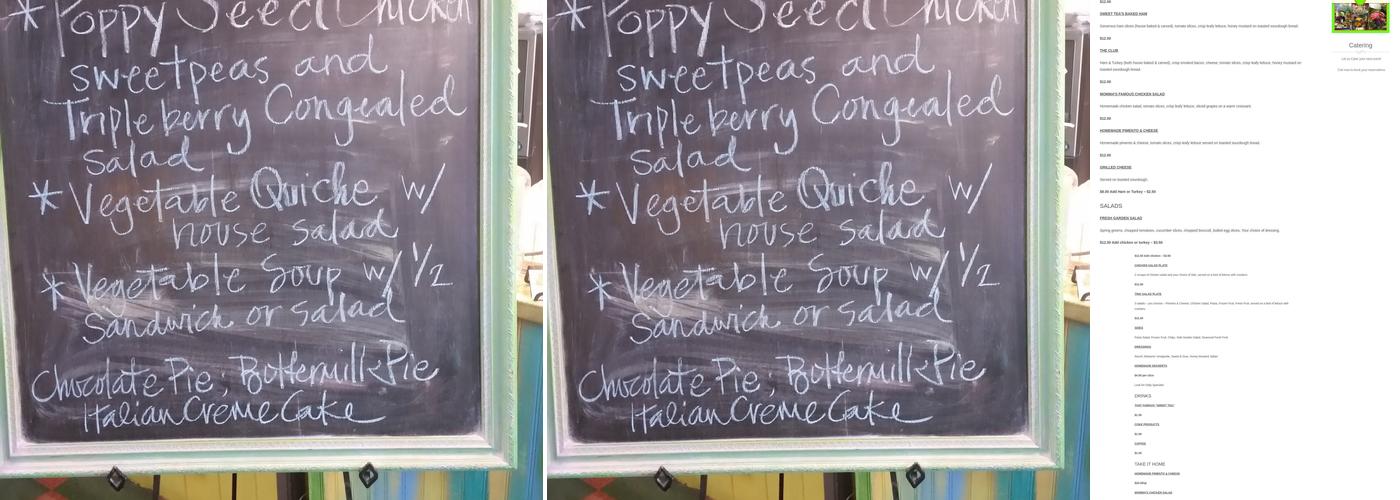 * Poppy Seed Chicken
sweetpeas and
Tripleberry Congealed
Salad
* Vegetable Quiche w/
house salad
* Vegetable Soup w/ 1/2
Sandwich or salad
Chocolate Pie, Buttermilk Pie
Italian Creme Cake
* Poppy Seed Chicken
sweetpeas and
Tripleberry Congealed
Salad
* Vegetable Quiche w/
house salad
* Vegetable Soup w/ 1/2
Sandwich or salad
Chocolate Pie, Buttermilk Pie
Italian Creme Cake
$12.00
SWEET TEA'S BAKED HAM
Generous ham slices (house baked & carved), tomato slices, crisp leafy lettuce, honey mustard on toasted sourdough bread.
$12.00
THE CLUB
Ham & Turkey (both house baked & carved), crisp smoked bacon, cheese, tomato slices, crisp leafy lettuce, honey mustard on
toasted sourdough bread.
$12.00
MOMMA'S FAMOUS CHICKEN SALAD
Homemade chicken salad, tomato slices, crisp leafy lettuce, sliced grapes on a warm croissant.
$12.00
HOMEMADE PIMENTO & CHEESE
Homemade pimento & cheese, tomato slices, crisp leafy lettuce served on toasted sourdough bread.
$12.00
GRILLED CHEESE
Served on toasted sourdough.
$8.00 Add Ham or Turkey – $2.50
SALADS
FRESH GARDEN SALAD
Spring greens, chopped tomatoes, cucumber slices, chopped broccoli, boiled egg slices. Your choice of dressing.
CHICKEN SALAD PLATE
TRIO SALAD PLATE
SIDES
DRESSINGS
HOMEMADE DESSERTS
$4.50 per slice
Look for Daily Specials!
DRINKS
THAT FAMOUS "SWEET TEA"
COKE PRODUCTS
COFFEE
TAKE IT HOME
HOMEMADE PIMENTO & CHEESE
MOMMA'S CHICKEN SALAD
Catering